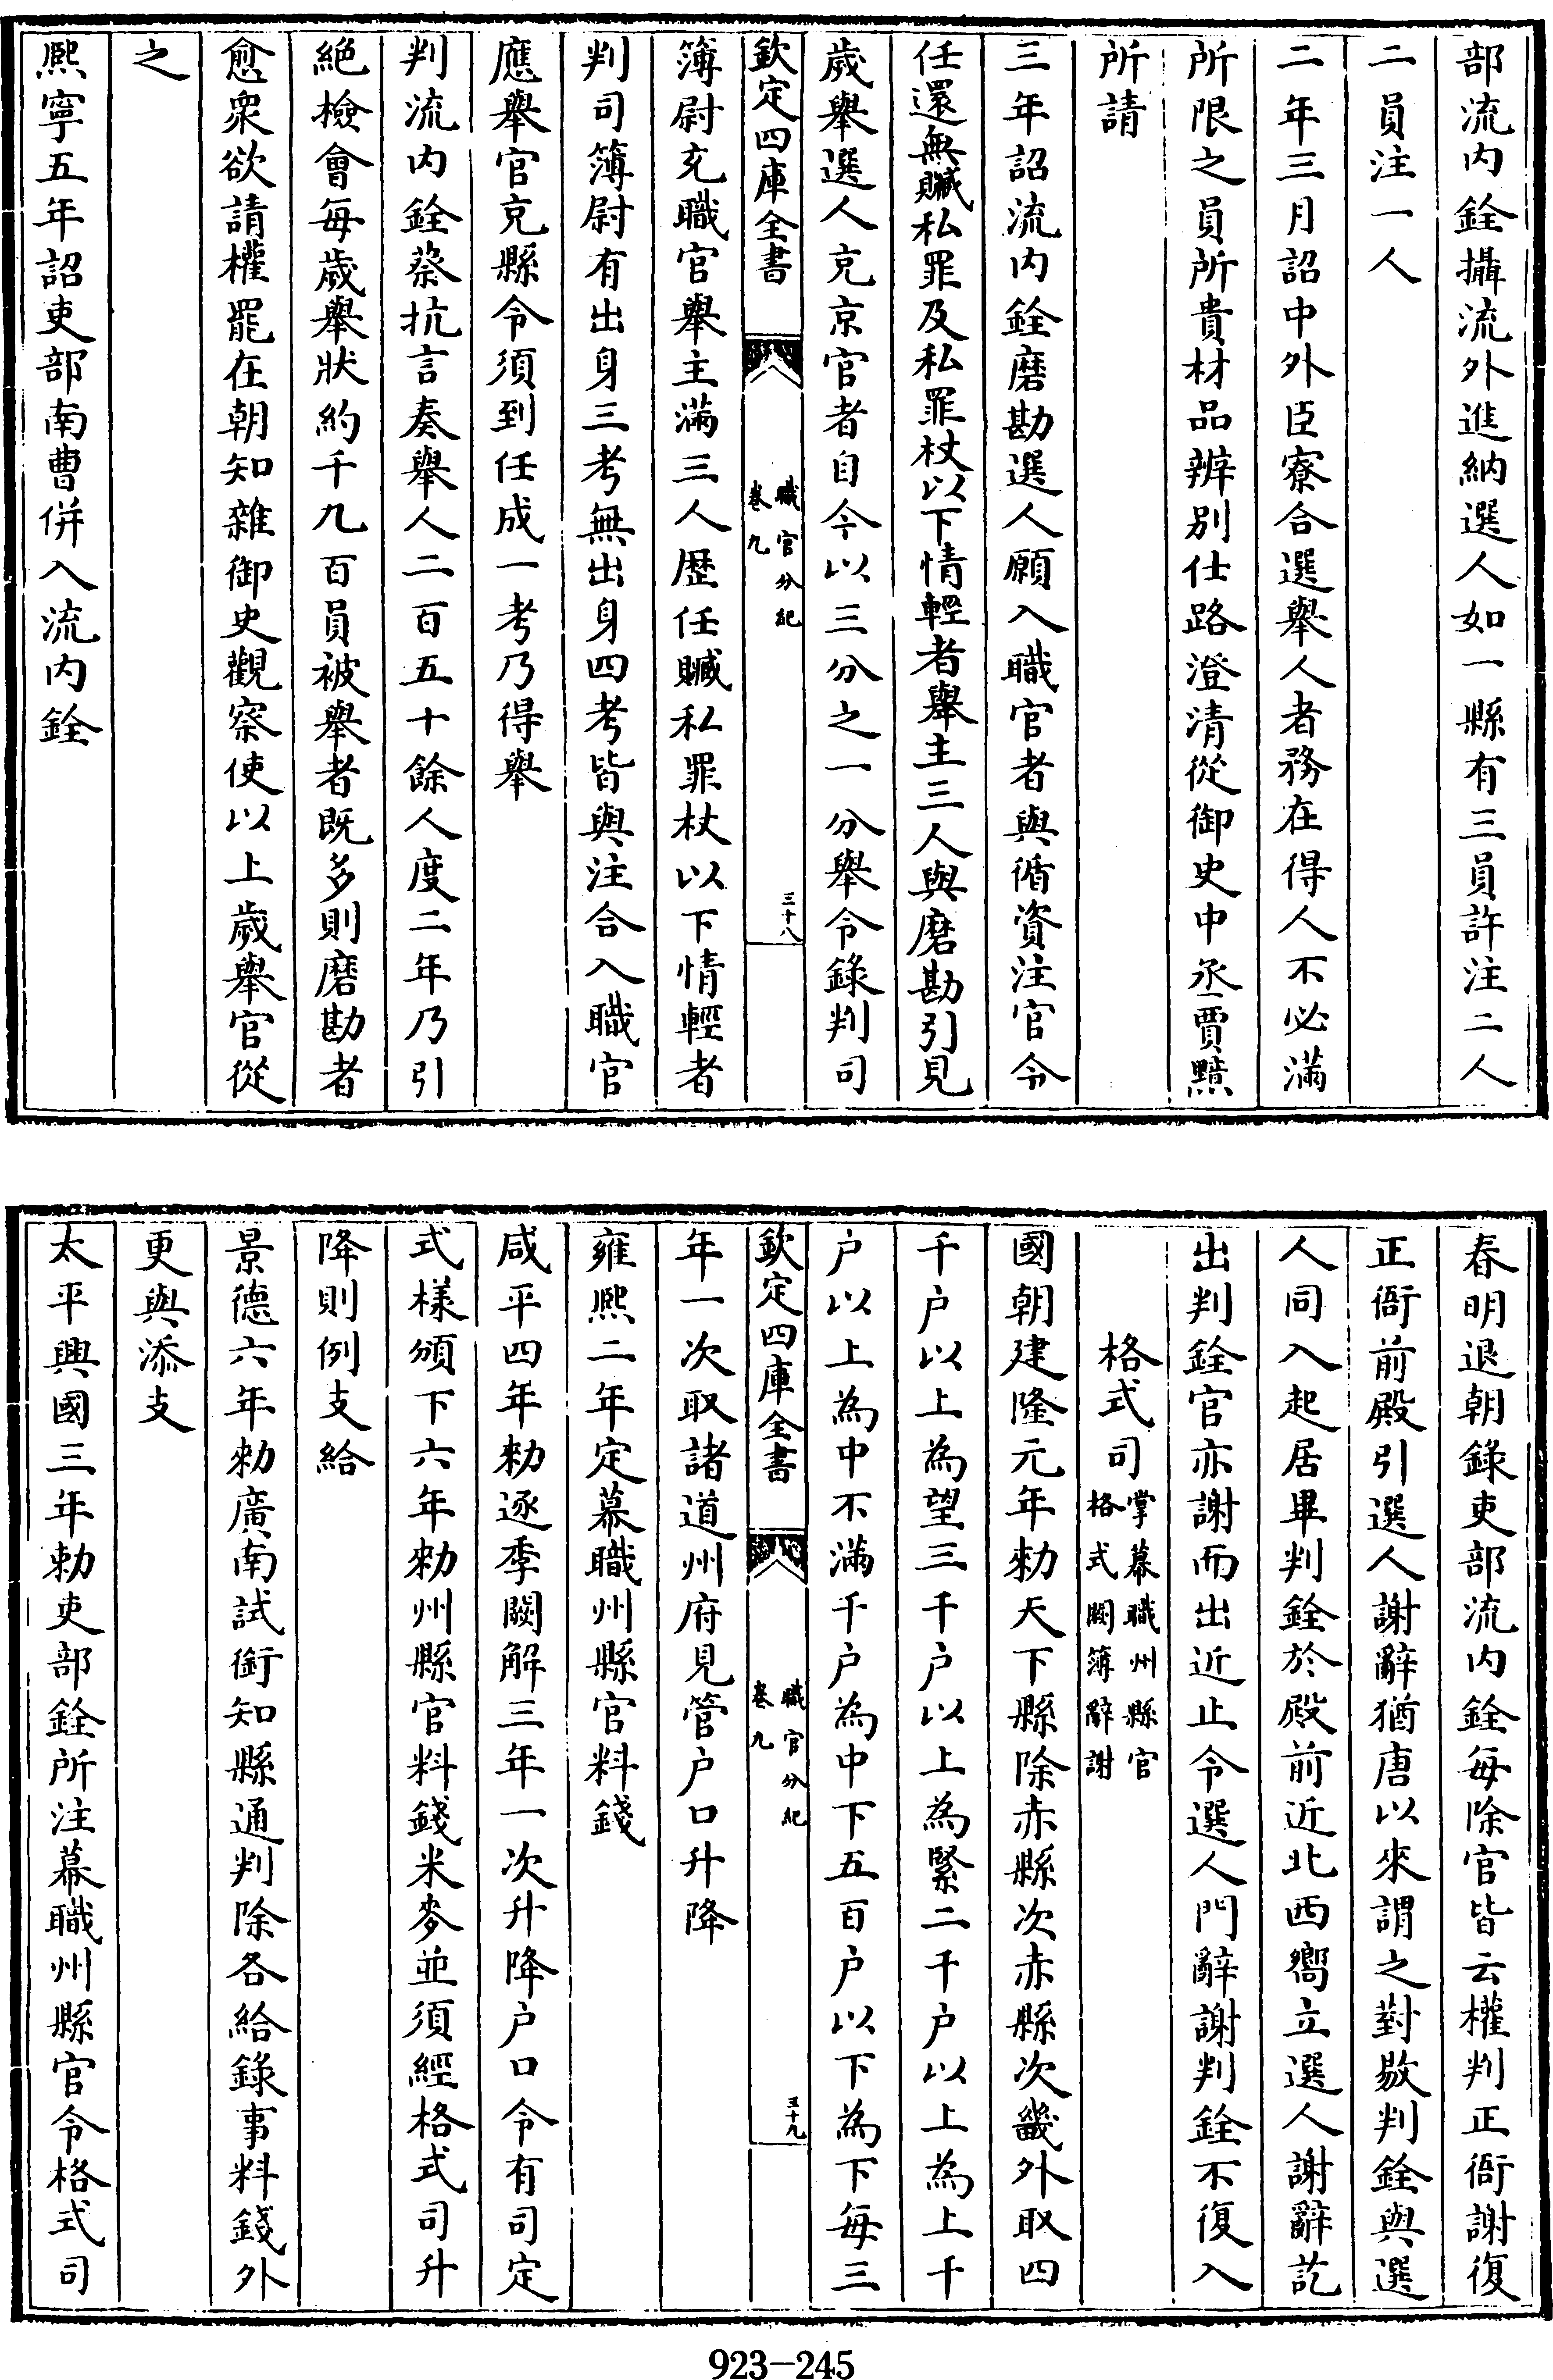 部流内銓攝流外進納選人如一縣有三員許注二人
二員注一人
二年三月詔中外臣寮合選舉人者務在得人不必滿
所限之員所貴材品辨别仕路澄清從御史中丞賈黯
所請
三年詔流内銓磨勘選人願入職官者與循資注官令
任還無贓私罪及私罪杖以下情輕者舉主三人與磨勘引見
歲舉選人充京官者自今以三分之一分舉令錄判司
欽定四庫全書
職官分紀
卷九
三十八
簿尉充職官舉主滿三人歴任贓私罪杖以下情輕者
判司簿尉有出身三考無出身四考皆與注合入職官
應舉官充縣令須到任成一考乃得舉
判流内銓蔡抗言奏舉人二百五十餘人度二年乃引
絕檢會每歲舉狀約千九百員被舉者既多則磨勘者
愈衆欲請權罷在朝知雜御史觀察使以上歲舉官從
之
熈寧五年詔吏部南曹併入流内銓
春明退朝錄吏部流内銓每除官皆云權判正衙謝復
正衙前殿引選人謝辭猶唐以來謂之對敭判銓與選
人同入起居畢判銓於殿前近北西嚮立選人謝辭訖
出判銓官亦謝而出近止令選人門辭謝判銓不復入
格式司掌幕職州縣官
格式闕簿辭謝
國朝建隆元年勑天下縣除赤縣次赤縣次畿外取四
千户以上為望三千户以上為緊二千户以上為上千
户以上為中不滿千户為中下五百户以下為下每三
欽定四庫全書
職官分紀
卷九
三十九
年一次取諸道州府見管户口升降
雍熈二年定幕職州縣官料錢
咸平四年勑逐季闕解三年一次升降户口令有司定
式樣頒下六年勑州縣官料錢米麥並須經格式司升
降則例支給
景德六年勑廣南試銜知縣通判除各給錄事料錢外
更與添支
太平興國三年勅吏部銓所注幕職州縣官令格式司
923-245